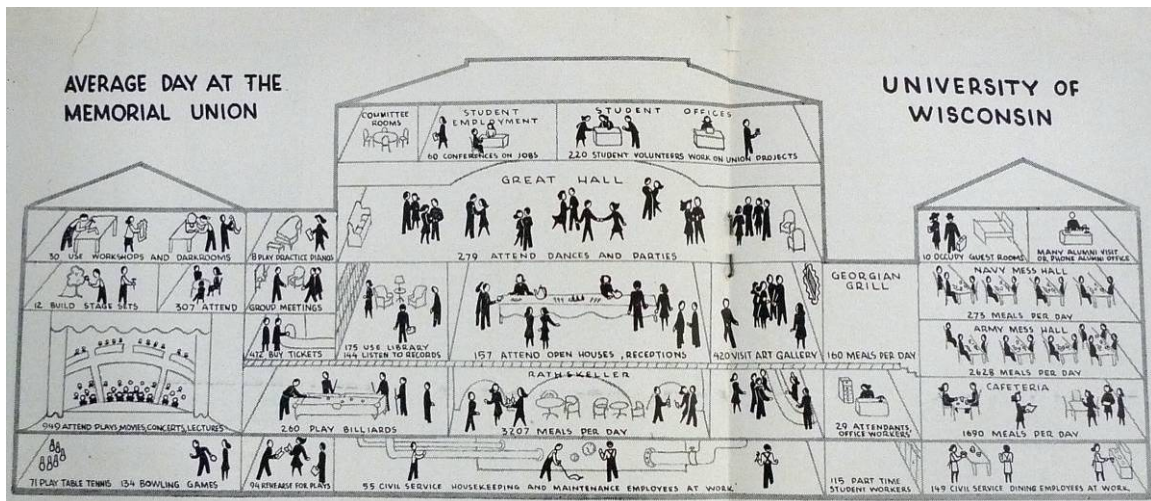 AVERAGE DAY AT THE
MEMORIAL UNION
UNIVERSITY OF
WISCONSIN
COMMITTEE
ROOMS
STUDENT
EMPLOYMENT
60 CONFERENCES ON JOBS
STUDENT OFFICES
220 STUDENT VOLUNTEERS WORK ON UNION PROJECTS
GREAT HALL
279 ATTEND DANCES AND PARTIES
30 USE WORKSHOPS AND DARKROOMS
8 PLAY PRACTICE PIANOS
10 OCCUPY GUEST ROOMS
MANY ALUMNI VISIT
OR PHONE ALUMNI OFFICE
12 BUILD STAGE SETS
307 ATTEND GROUP MEETINGS
412 BUY TICKETS
175 USE LIBRARY
144 LISTEN TO RECORDS
157 ATTEND OPEN HOUSES, RECEPTIONS
420 VISIT ART GALLERY
GEORGIAN
GRILL
160 MEALS PER DAY
NAVY MESS HALL
273 MEALS PER DAY
ARMY MESS HALL
2628 MEALS PER DAY
949 ATTEND PLAYS, MOVIES, CONCERTS, LECTURES
260 PLAY BILLIARDS
RATHSKELLER
3207 MEALS PER DAY
29 ATTENDANTS
OFFICE WORKERS
CAFETERIA
1690 MEALS PER DAY
71 PLAY TABLE TENNIS 134 BOWLING GAMES
94 REHEARSE FOR PLAYS
55 CIVIL SERVICE HOUSEKEEPING AND MAINTENANCE EMPLOYEES AT WORK
115 PART TIME
STUDENT WORKERS
149 CIVIL SERVICE DINING EMPLOYEES AT WORK